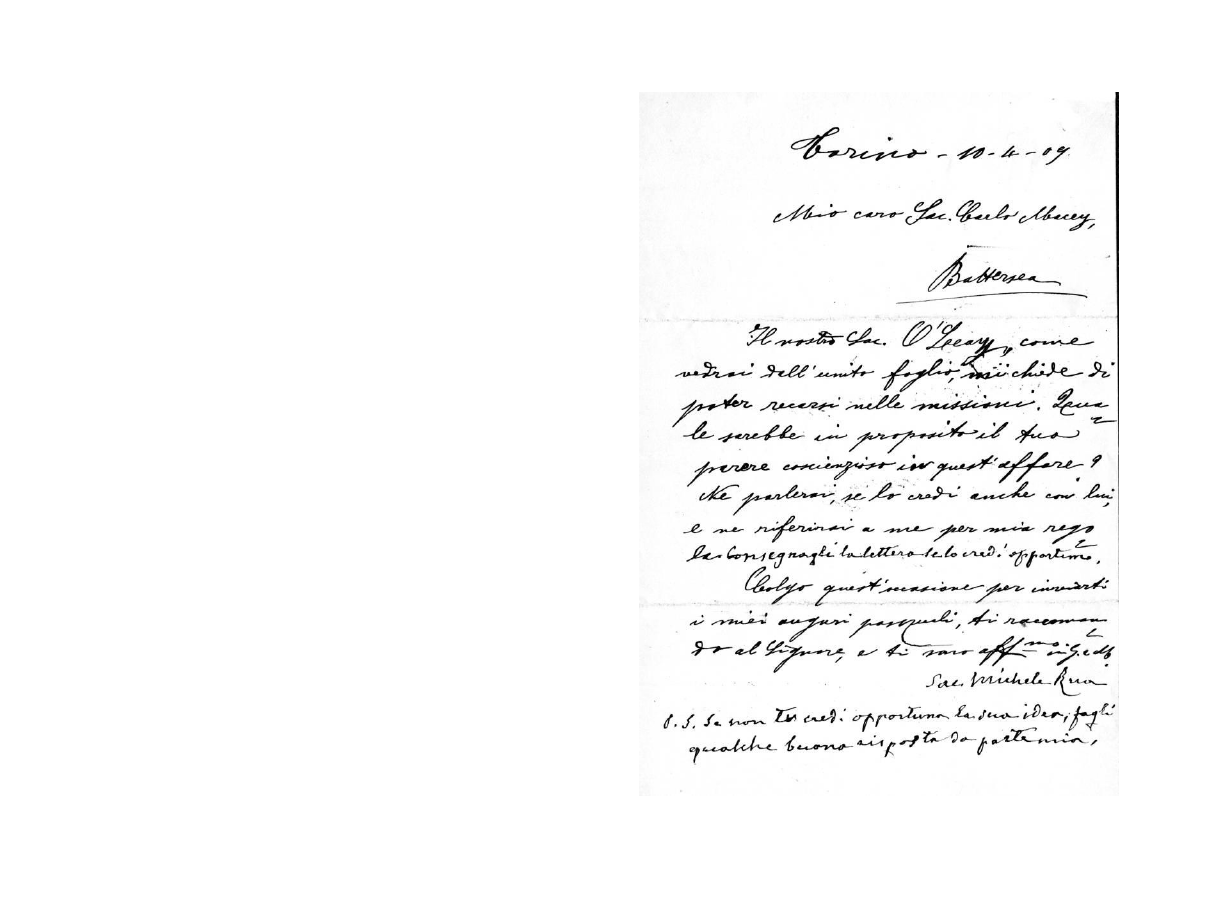 Torino - 10-4-09
Mio caro Sac. Carlo Macey,
Battersea
Il nostro Sac. O'Leary, come
vedrai dall'unito foglio, mi chiede di
poter recarsi nelle missioni. Qua
le sarebbe in proposito il tuo
parere coscienzioso in quest'affare?
Ne parlerai, se lo credi anche con lui,
e ne riferirai a me per mia rego
la. Consegnagli la lettera se lo credi opportuno.
Colgo quest'occasione per inviarti
i miei auguri pasquali, ti raccoman
do al Signore, e ti sarò aff.mo in G. e M.
Sac. Michele Rua
P.S. Se non credi opportuna la sua idea, fagli
qualche buona risposta da parte mia.